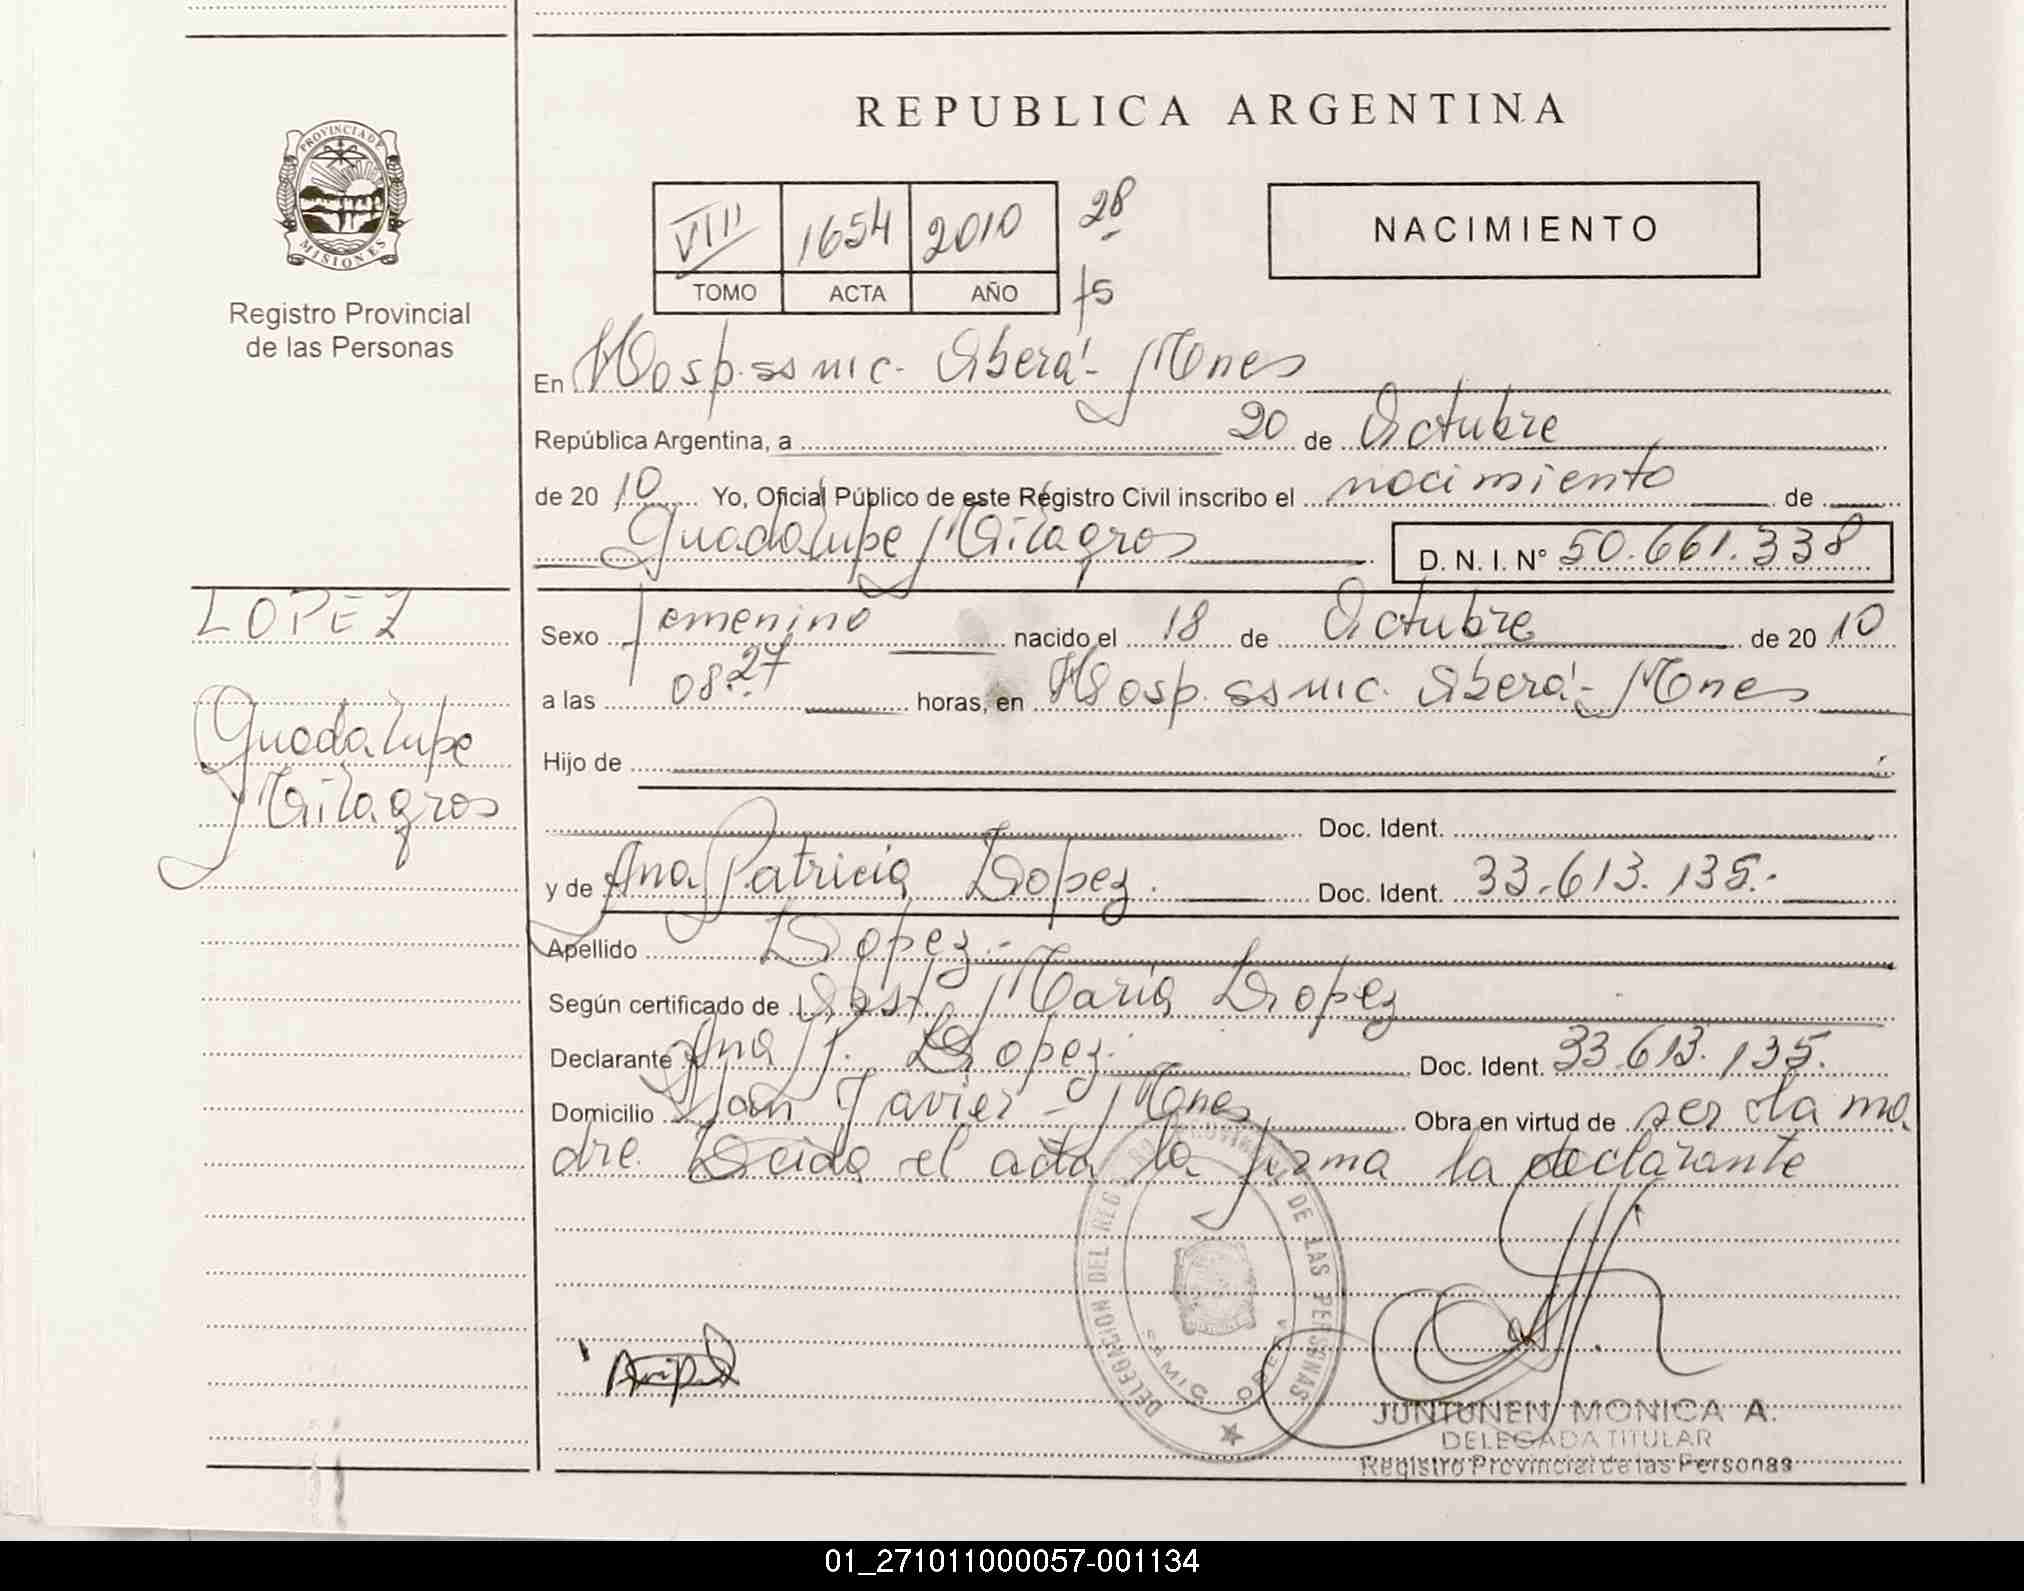 REPUBLICA ARGENTINA
PROVINCIA DE
MISIONES
Registro Provincial
de las Personas
VIII 1654 2010 28
TOMO ACTA AÑO f5
NACIMIENTO
En Hosp. ss mic. Oberá - Mnes
República Argentina, a 20 de Octubre
de 2010 Yo, Oficial Público de este Registro Civil inscribo el nacimiento de
Guadalupe Milagros D. N. I. N° 50.661.338
LOPEZ
Guadalupe
Milagros
Sexo femenino nacido el 18 de Octubre de 2010
a las 08:27 horas, en Hosp. ss mic. Oberá - Mnes
Hijo de
Doc. Ident.
y de Ana Patricia Lopez. Doc. Ident. 33.613.135.-
Apellido Lopez.-
Según certificado de Obst. María Lopez
Declarante Ana P. Lopez. Doc. Ident. 33.613.135.
Domicilio San Javier - Mnes Obra en virtud de ser la ma
dre. Leida el acta la firma la declarante
DELEGACION DEL REG. PROVINCIAL DE LAS PERSONAS
SAMIC OBERA
JUNTUNEN MONICA A.
DELEGADA TITULAR
Registro Provincial de las Personas
01_271011000057-001134